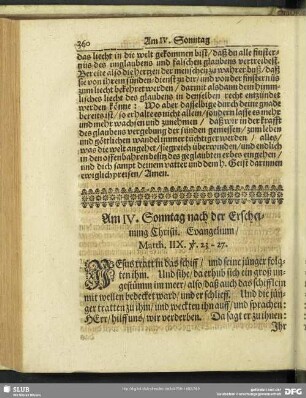 360
Am IV. Sonntag
das liecht in die welt gekommen bist / daß du alle finster-
nüs des unglaubens und falschen glaubens vertreibest.
Bereite also die hertzen der menschen zu wahrer buß / daß
sie von ihren sünden / dienst zu dir / und von der finsternüs
zum liecht bekehret werden / damit alsdann dein himm-
lisches liecht des glaubens in denselben recht entzündet
werden könne: Wo aber dasselbige durch deine gnade
bereits ist / so erhalte es nicht allein / sondern lasse es mehr
und mehr wachsen und zunehmen / daß wir in der krafft
des glaubens vergebung der sünden geniessen / zum leben
und göttlichen wandel immer tüchtiger werden / alles /
was die welt angehet / siegreich überwinden / und endlich
in den offenbahren besitz des geglaubten erbes eingehen /
und dich sampt deinem vatter und dem h. Geist darinnen
ewiglich preisen / Amen.
Am IV. Sonntag nach der Erschei-
nung Christi. Evangelium /
Matth. IIX. ℣. 23-27.
JEsus trat in das schiff / und seine jünger folg-
ten ihm. Und sihe / da erhub sich ein groß un-
gestümm im meer / also / daß auch das schifflein
mit wellen bedecket ward / und er schlieff. Und die jün-
ger tratten zu ihm / und weckten ihn auff / und sprachen:
HErr / hilff uns / wir verderben. Da sagt er zu ihnen:
Ihr
SLUB
DFG